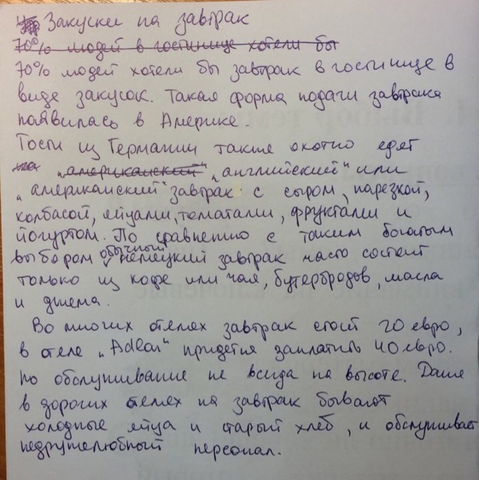 Закуски на завтрак
70% людей в гостинице хотели бы
70% людей хотели бы завтрак в гостинице в
виде закусок. Такая форма подачи завтрака
появилась в Америке.
Гости из Германии также охотно едят
на „американский“ „английский“ или
„американский“ завтрак с сыром, нарезкой,
колбасой, яйцами, томатами, фруктами и
йогуртом. По сравнению с таким богатым
выбором обычный немецкий завтрак часто состоит
только из кофе или чая, бутербродов, масла
и джема.
Во многих отелях завтрак стоит 20 евро,
в отеле „Adlon“ придется заплатить 40 евро.
Но обслуживание не всегда на высоте. Даже
в дорогих отелях на завтрак бывают
холодные яйца и старый хлеб, и обслуживает
недружелюбный персонал.